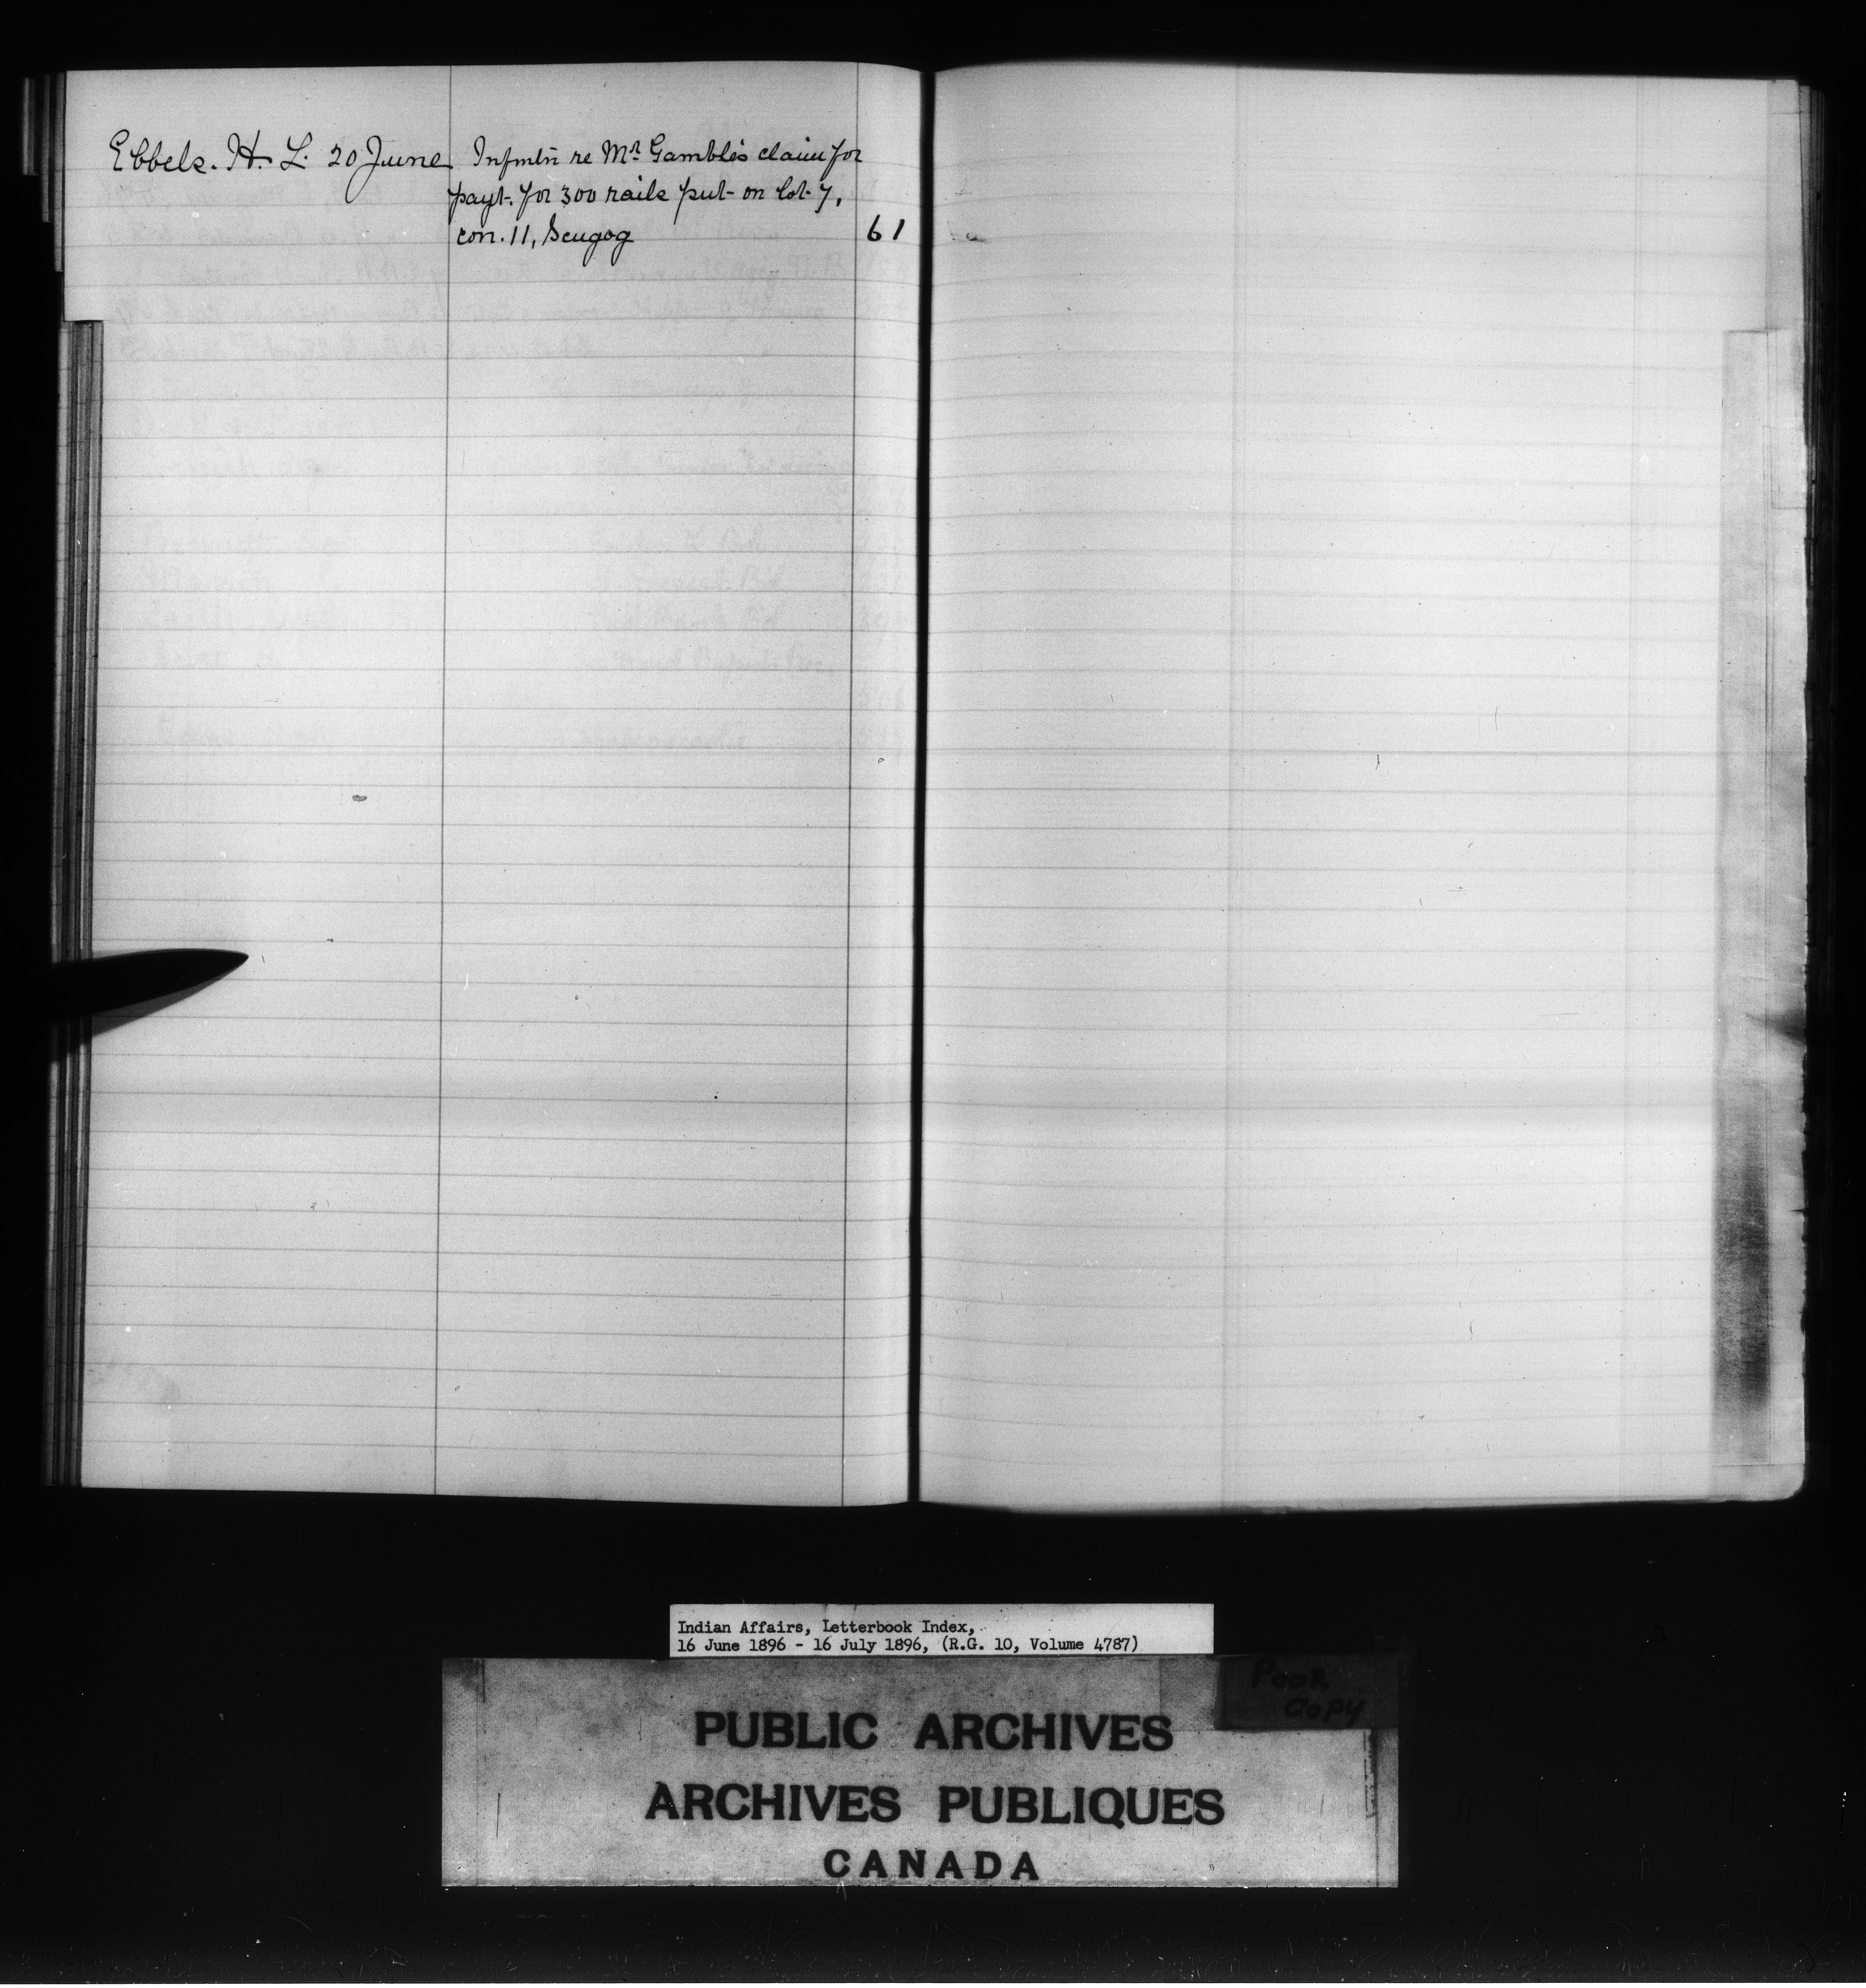 Ebbels. H. L. 20 June Infmtn re Mr Gamble's claim for
payt. for 300 rails put on lot 7,
con. 11, Scugog 61
Indian Affairs, Letterbook Index,
16 June 1896 - 16 July 1896, (R.G. 10, Volume 4787)
Poor
Copy
PUBLIC ARCHIVES
ARCHIVES PUBLIQUES
CANADA